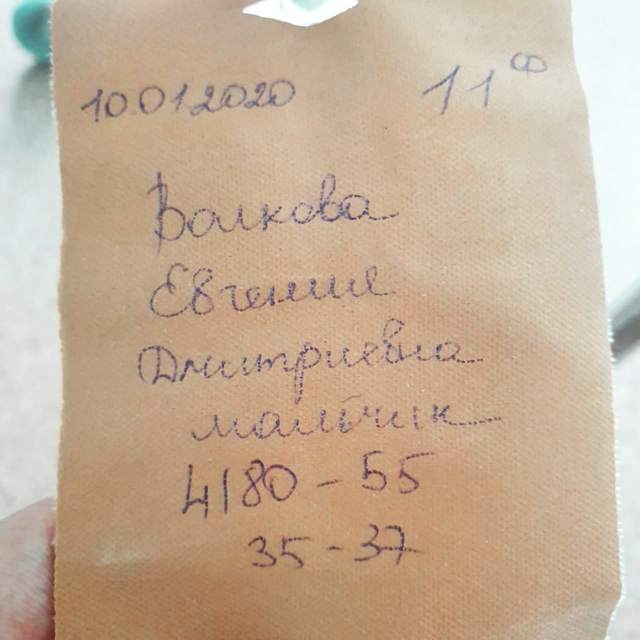 10.01.2020 11⁰⁰
Волкова
Евгения
Дмитриевна
мальчик
4180 - 55
35 - 37